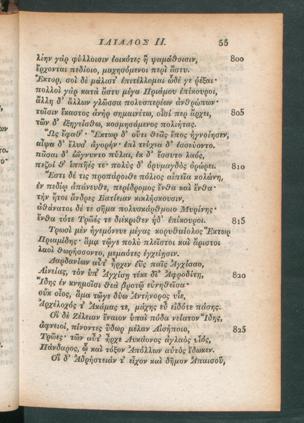 ΙΛΙΑΔΟΣ ΙΙ. 55
λίην γὰρ φύλλοισιν ἐοικότες ἢ ψαμάθοισιν, 800
ἔρχονται πεδίοιο, μαχησόμενοι περὶ ἄστυ.
Ἕκτορ, σοὶ δὲ μάλιστ᾽ ἐπιτέλλομαι ὧδέ γε ῥέξαι·
πολλοὶ γὰρ κατὰ ἄστυ μέγα Πριάμου ἐπίκουροι,
ἄλλη δ᾽ ἄλλων γλῶσσα πολυσπερέων ἀνθρώπων·
τοῖσιν ἕκαστος ἀνὴρ σημαινέτω, οἷσί περ ἄρχει, 805
τῶν δ᾽ ἐξηγείσθω, κοσμησάμενος πολιήτας.
Ὣς ἔφαθ᾽· Ἕκτωρ δ᾽ οὔτι θεᾶς ἔπος ἠγνοίησεν,
αἶψα δ᾽ ἔλυσ᾽ ἀγορήν· ἐπὶ τεύχεα δ᾽ ἐσσεύοντο.
πᾶσαι δ᾽ ὠΐγνυντο πύλαι, ἐκ δ᾽ ἔσσυτο λαός,
πεζοί θ᾽ ἱππῆές τε· πολὺς δ᾽ ὀρυμαγδὸς ὀρώρει. 810
Ἔστι δέ τις προπάροιθε πόλιος αἰπεῖα κολώνη,
ἐν πεδίῳ ἀπάνευθε, περίδρομος ἔνθα καὶ ἔνθα·
τὴν ἤτοι ἄνδρες Βατίειαν κικλήσκουσιν,
ἀθάνατοι δέ τε σῆμα πολυσκάρθμοιο Μυρίνης·
ἔνθα τότε Τρῶές τε διέκριθεν ἠδ᾽ ἐπίκουροι. 815
Τρωσὶ μὲν ἡγεμόνευε μέγας κορυθαίολος Ἕκτωρ
Πριαμίδης· ἅμα τῷγε πολὺ πλεῖστοι καὶ ἄριστοι
λαοὶ θωρήσσοντο, μεμαότες ἐγχείῃσιν.
Δαρδανίων αὖτ᾽ ἦρχεν ἐῢς παῖς Ἀγχίσαο,
Αἰνείας, τὸν ὑπ᾽ Ἀγχίσῃ τέκε δῖ᾽ Ἀφροδίτη, 820
Ἴδης ἐν κνημοῖσι θεὰ βροτῷ εὐνηθεῖσα·
οὐκ οἶος, ἅμα τῷγε δύω Ἀντήνορος υἷε,
Ἀρχέλοχός τ᾽ Ἀκάμας τε, μάχης εὖ εἰδότε πάσης.
Οἳ δὲ Ζέλειαν ἔναιον ὑπαὶ πόδα νείατον Ἴδης,
ἀφνειοί, πίνοντες ὕδωρ μέλαν Αἰσήποιο, 825
Τρῶες· τῶν αὖτ᾽ ἦρχε Λυκάονος ἀγλαὸς υἱός,
Πάνδαρος, ᾧ καὶ τόξον Ἀπόλλων αὐτὸς ἔδωκεν.
Οἳ δ᾽ Ἀδρήστειάν τ᾽ εἶχον καὶ δῆμον Ἀπαισοῦ,